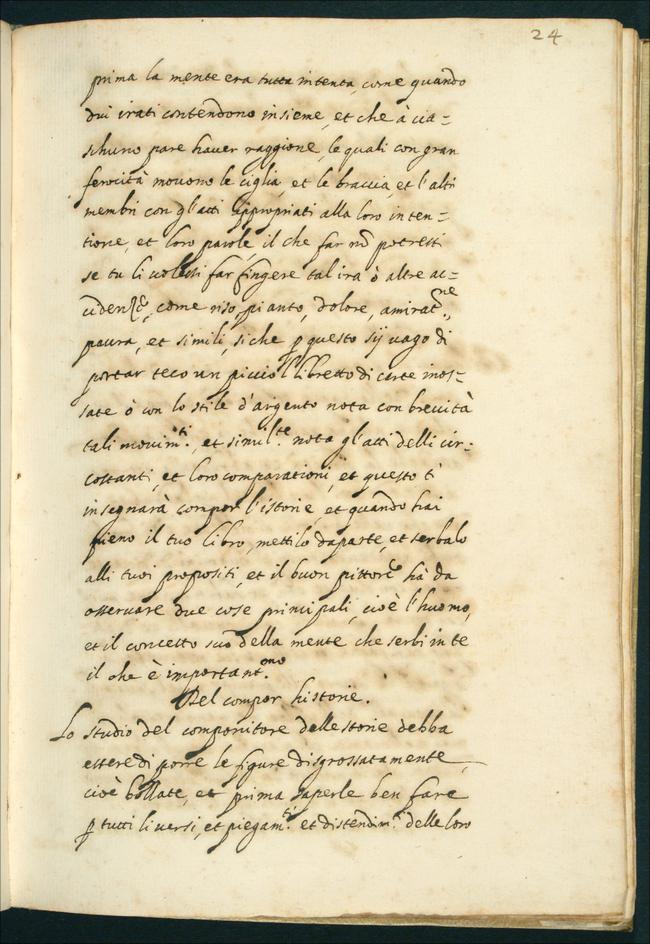 24
prima la mente era tutta intenta, come quando
dui irati contendono insieme, et che à cia=
schuno pare hauer raggione, le quali con gran
ferocità mouono le ciglia, et le braccia, et l'altri
membri con gl'atti appropriati alla loro inten=
tione, et loro parole, il che far nõ potresti
se tu li uolessi far fingere tal ira ò altre ac=
cidenze, come riso, pianto, dolore, amirat.ne,
paura, et simili, siche p questo sij uago di
portar teco un picciol libretto di carte inos=
sate ò con lo stile d'argento nota con breuità
tali mouim.ti, et simil.te nota gl'atti delli cir=
costanti, et loro comparationi, et questo ti
insegnarà compor l'istorie, et quando hai
pieno il tuo libro, mettilo daparte, et serbalo
alli tuoi propositi, et il buon pittore hà da
osseruare due cose principali, cioè l'huomo,
et il concetto suo della mente che serbi in te
il che è important.mo
Del compor historie.
Lo studio del componitore delle storie debba
essere di porre le figure disgrossatamente,
cioè bollate, et prima saperle ben fare
p tutti li uersi, et piegam.ti et distendim.i delle loro